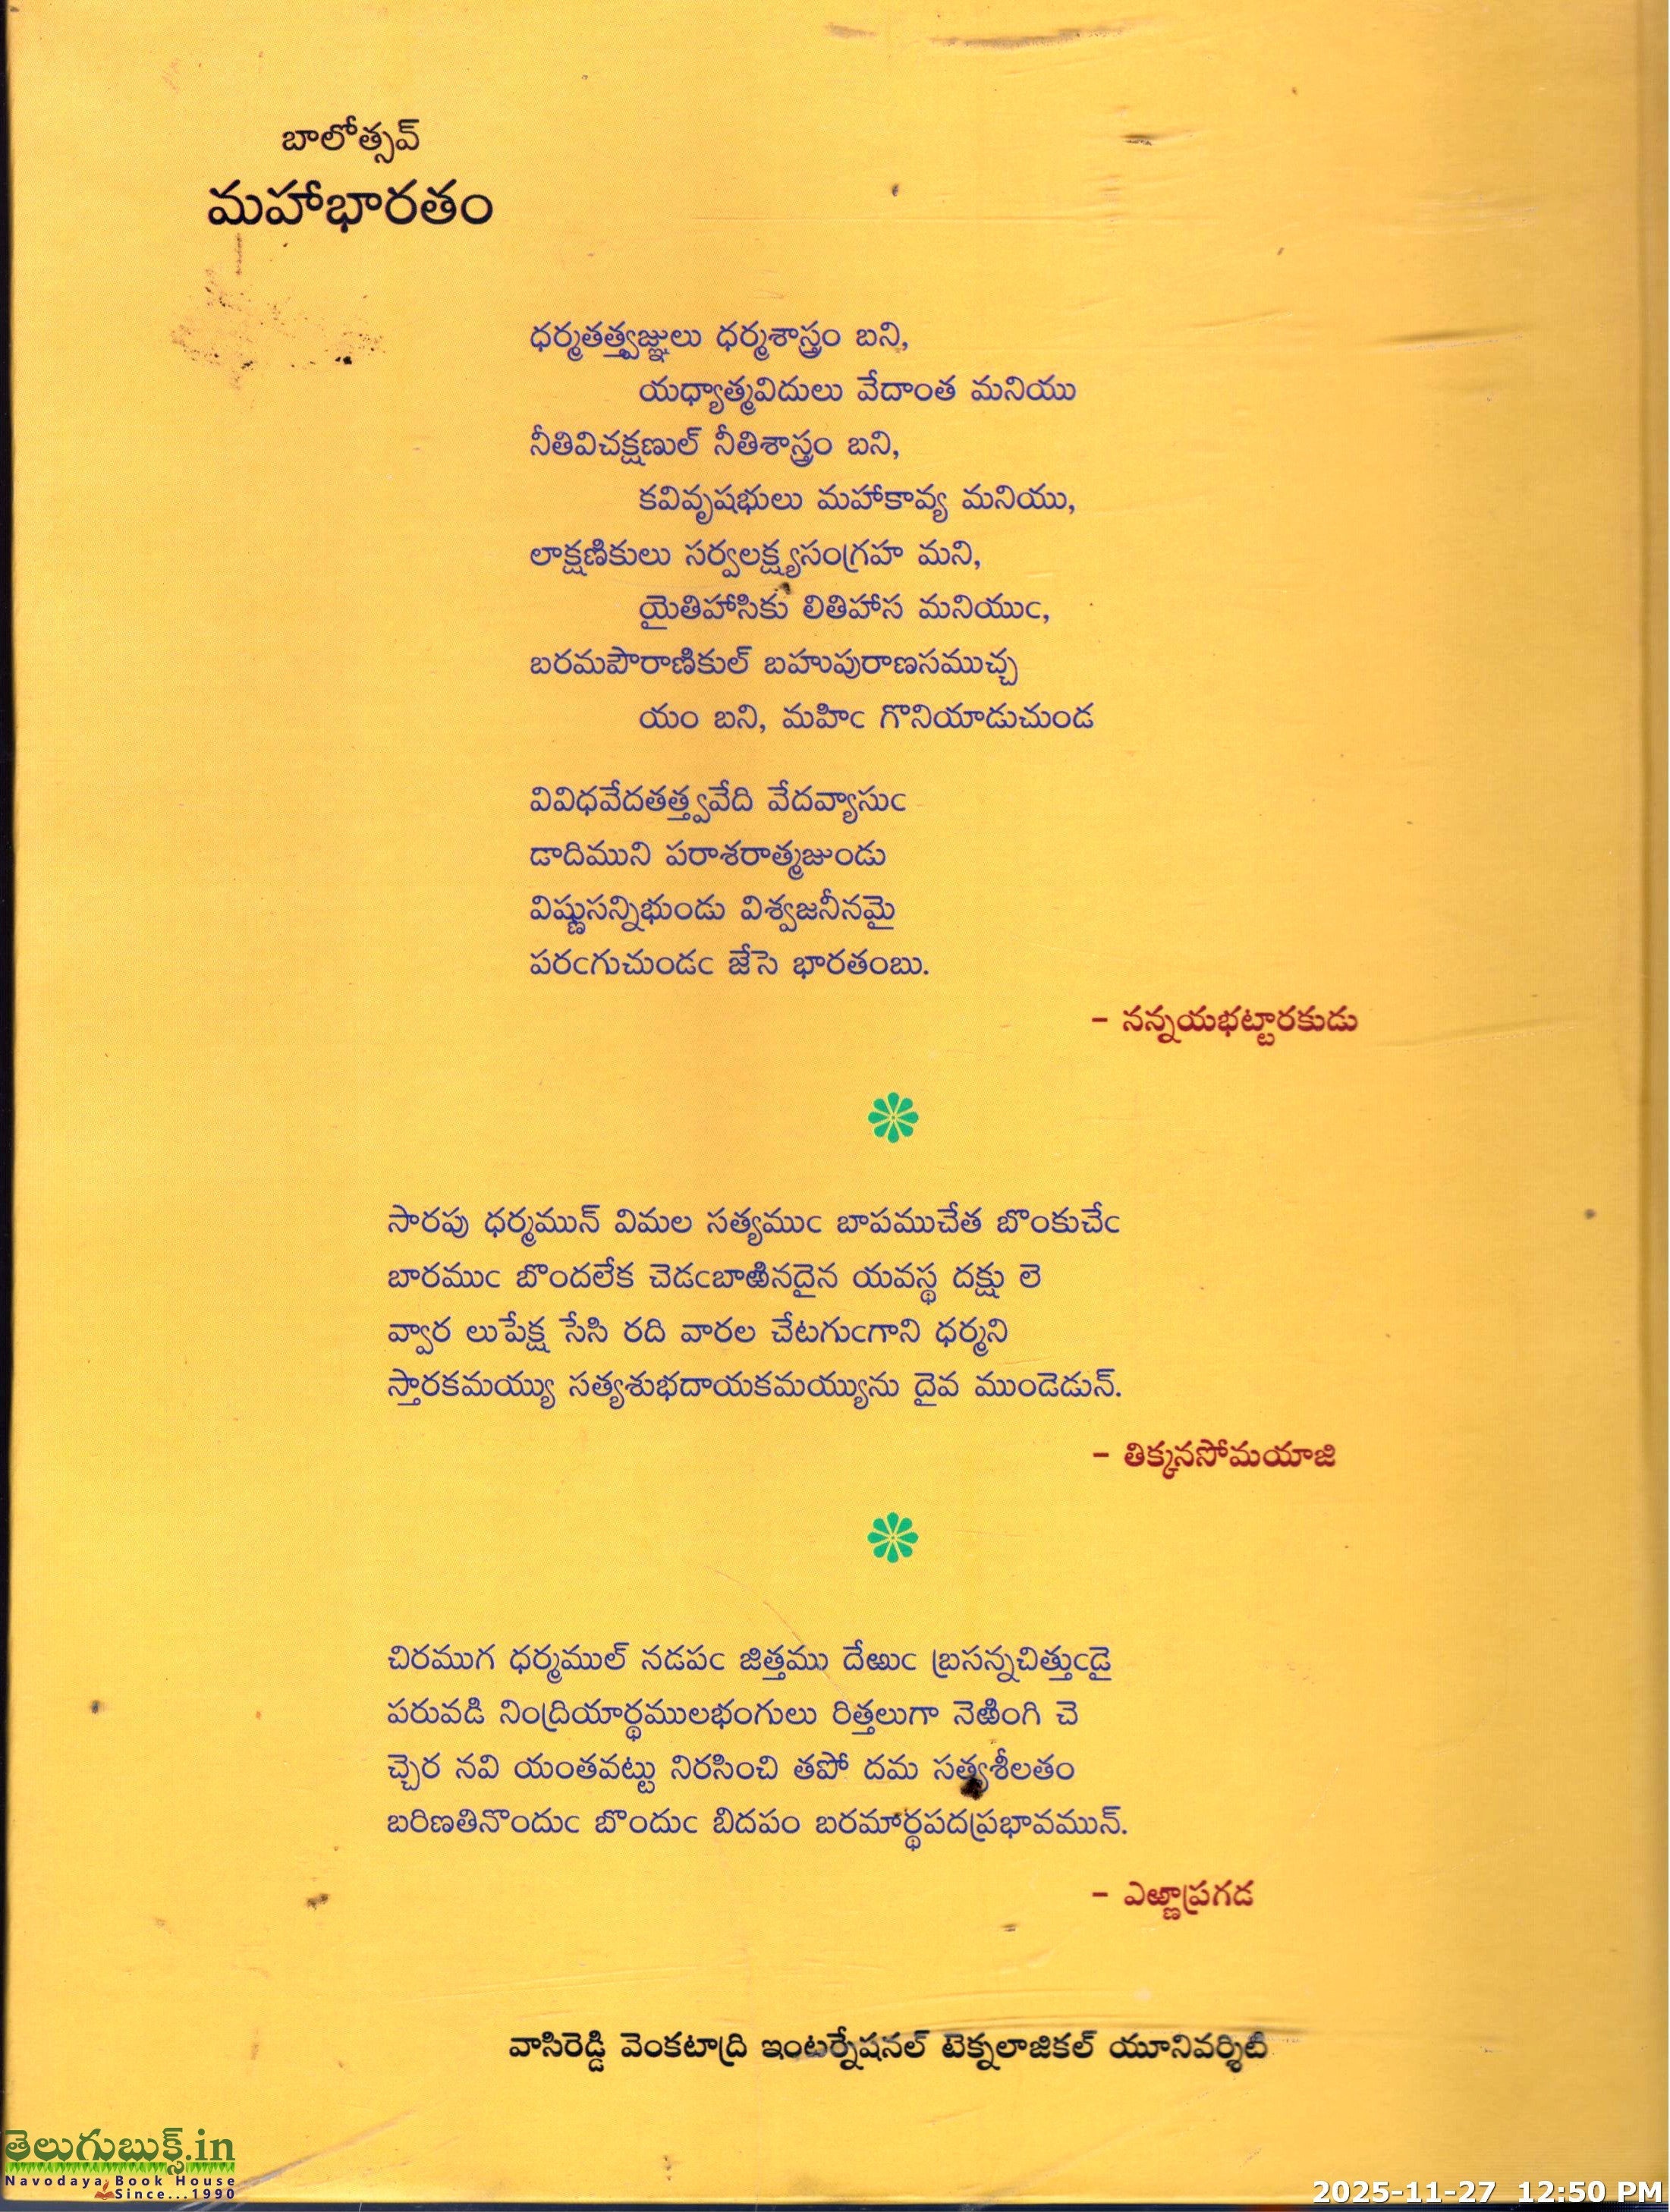 బాలోత్సవ్
మహాభారతం
ధర్మతత్త్వజ్ఞులు ధర్మశాస్త్రం బని,
యధ్యాత్మవిదులు వేదాంత మనియు
నీతివిచక్షణుల్ నీతిశాస్త్రం బని,
కవివృషభులు మహాకావ్య మనియు,
లాక్షణికులు సర్వలక్ష్యసంగ్రహ మని,
యైతిహాసికు లితిహాస మనియుఁ,
బరమపౌరాణికుల్ బహుపురాణసముచ్చ
యం బని, మహిఁ గొనియాడుచుండ
వివిధవేదతత్త్వవేది వేదవ్యాసుఁ
డాదిముని పరాశరాత్మజుండు
విష్ణుసన్నిభుండు విశ్వజనీనమై
పరఁగుచుండఁ జేసె భారతంబు.
– నన్నయభట్టారకుడు
సారపు ధర్మమున్ విమల సత్యముఁ బాపముచేత బొంకుచేఁ
బారముఁ బొందలేక చెడఁబాఱినదైన యవస్థ దక్షు లె
వ్వార లుపేక్ష సేసి రది వారల చేటగుఁగాని ధర్మని
స్తారకమయ్యు సత్యశుభదాయకమయ్యును దైవ ముండెడున్.
– తిక్కనసోమయాజి
చిరముగ ధర్మముల్ నడపఁ జిత్తము దేఱుఁ బ్రసన్నచిత్తుఁడై
పరువడి నింద్రియార్థములభంగులు రిత్తలుగా నెఱింగి చె
చ్చెర నవి యంతవట్టు నిరసించి తపో దమ సత్యశీలతం
బరిణతినొందుఁ బొందుఁ బిదపం బరమార్థపదప్రభావమున్.
– ఎఱ్ఱాప్రగడ
వాసిరెడ్డి వెంకటాద్రి ఇంటర్నేషనల్ టెక్నలాజికల్ యూనివర్శిటి
తెలుగుబుక్స్.in
Navodaya Book House
Since...1990
2025-11-27 12:50 PM